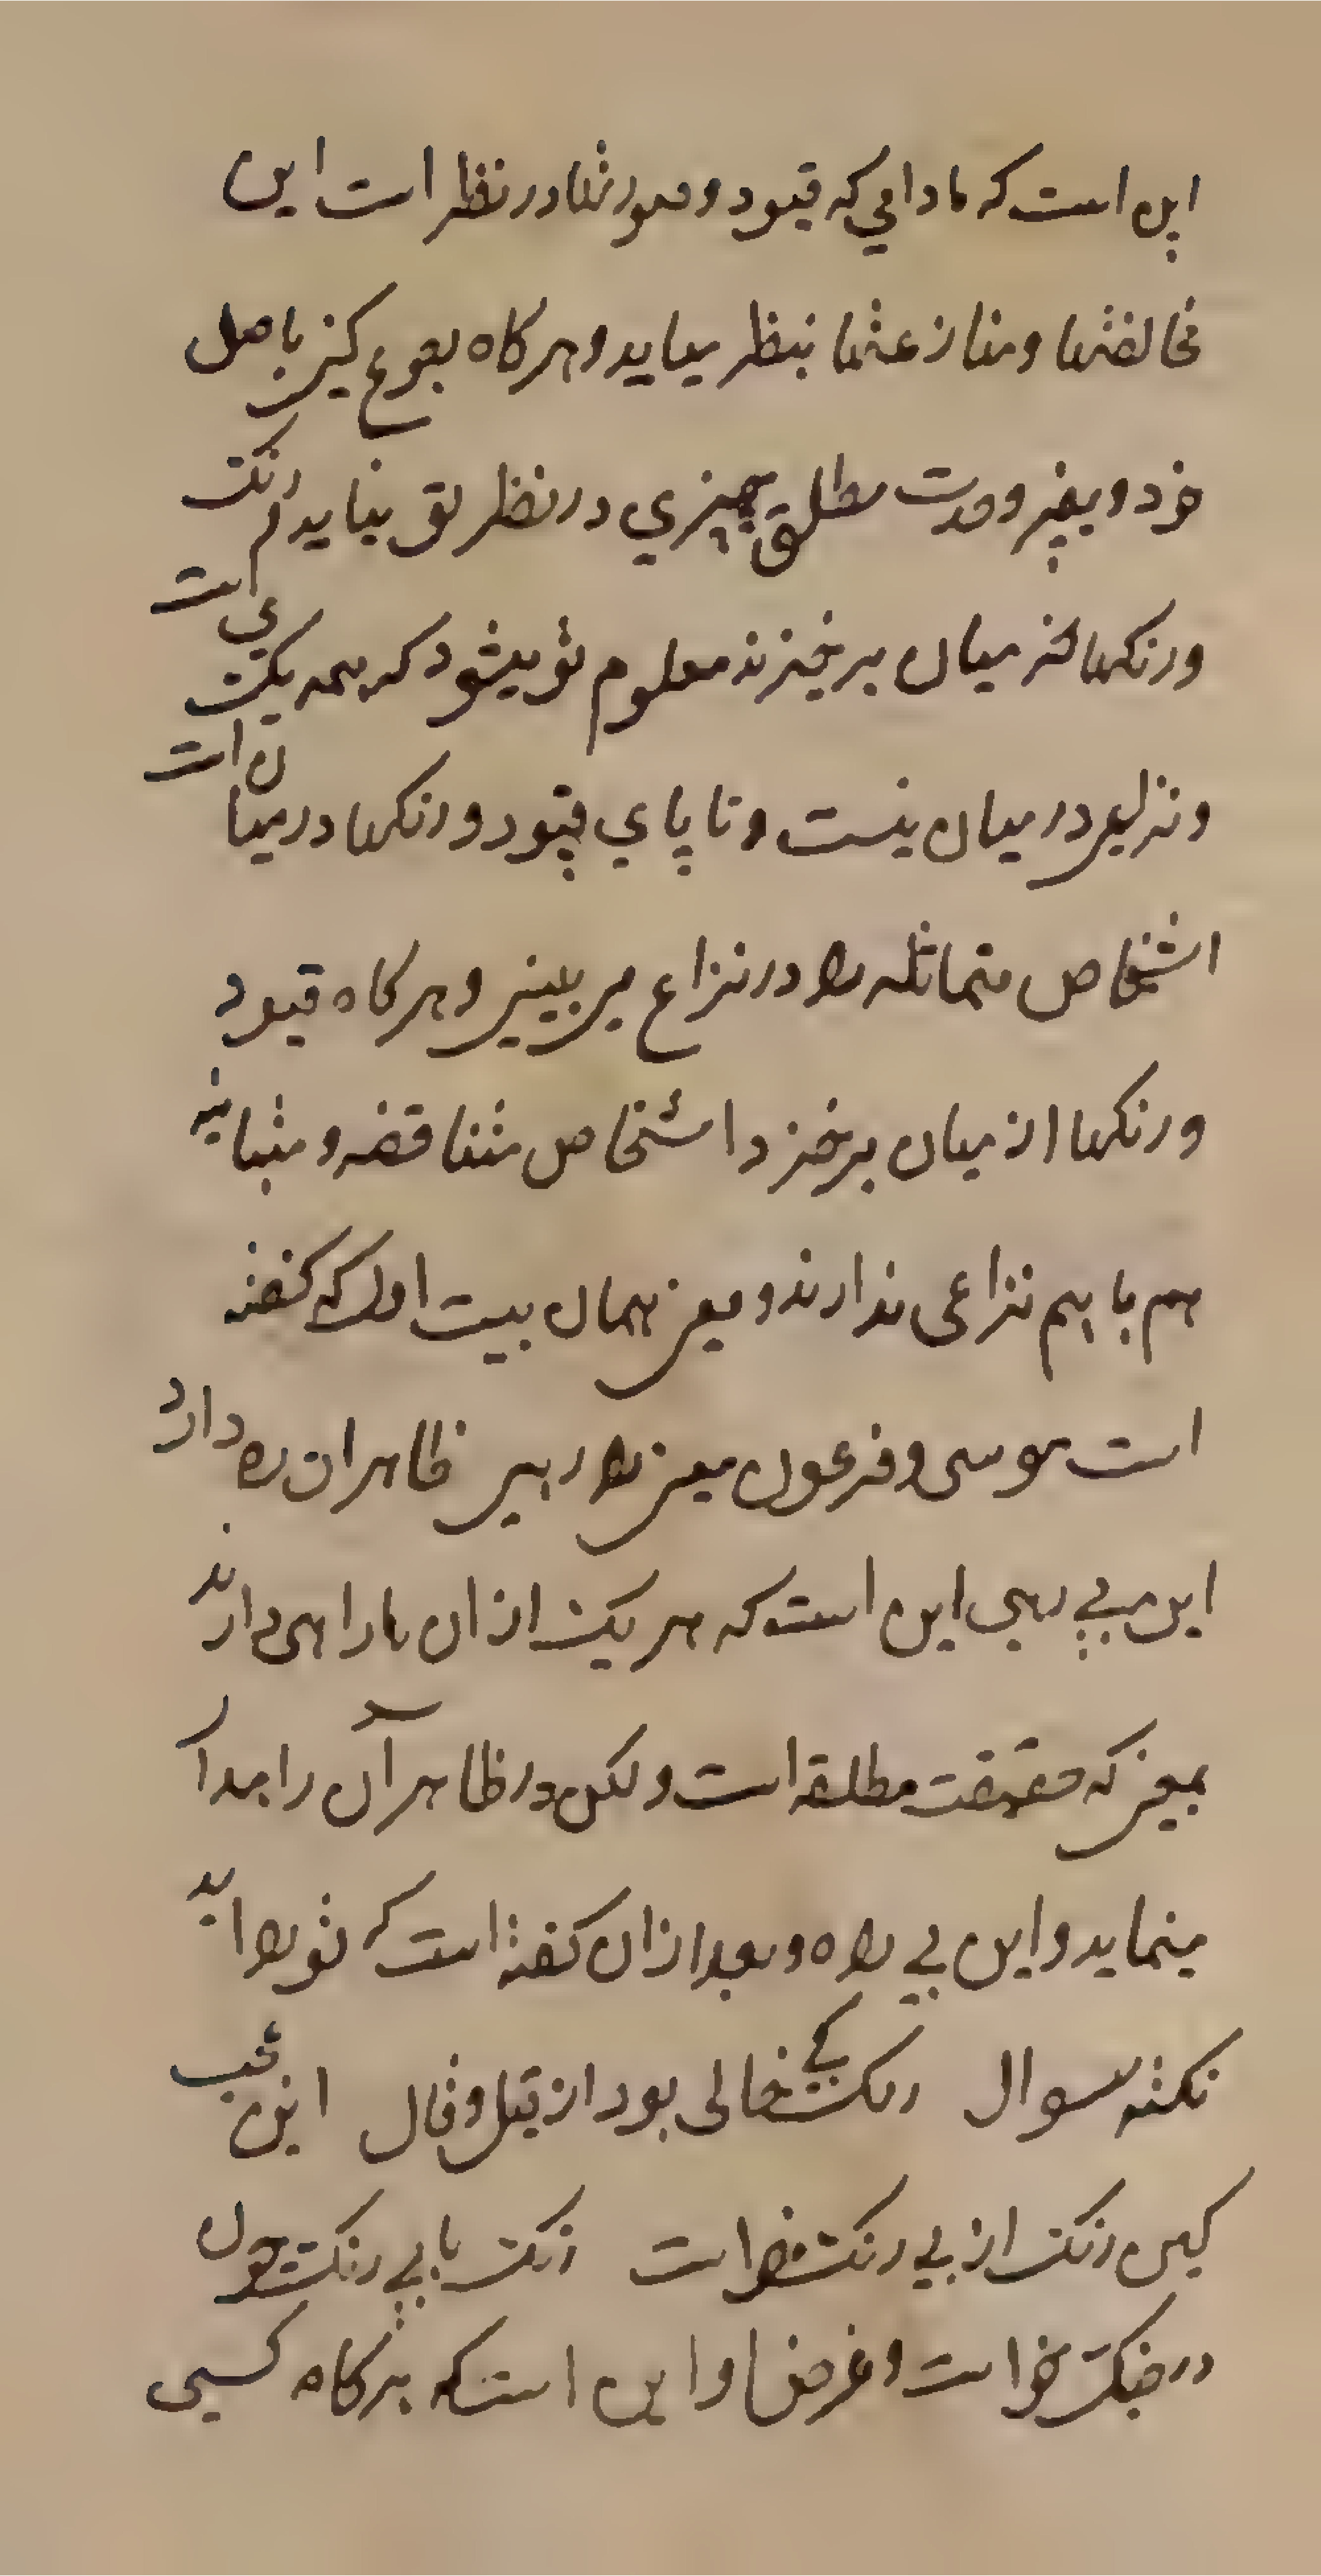 این است که مادامی که قیود و صورتها در نظر است این
مخالفتها و منازعتها بنظر میاید و هرگاه رجوع کنی باصل
خود و بغیر وحدت مطلق چیزی در نظر تو نیاید و رنگ
و رنگها که از میان برخیزند معلوم تو میشود که همه یکی است
و نزاعی در میان نیست و تا پای قیود و رنگها در میان است
اشخاص متماثله را در نزاع می بینی و هرگاه قیود
و رنگها از میان برخیزد اشخاص متناقضه و متباینه
هم با هم نزاعی ندارند و معنی همان بیت اول که گفته
است موسی و فرعون معنی را رهی ظاهر ان ره دارد
این بی رهی این است که هر یک از ان ها راهی دارند
بمعنی که حقیقت مطلقه است و لکن در ظاهر آن را جدا
مینماید و این بی راه و بعد از ان گفته است که تو را اید
نکته سوال رنگ کی خالی بود از قیل و قال این عجب
کین رنگ از بی رنگ خواست رنگ با بی رنگ چون
در جنگ خواست و غرض او این است که هرگاه کسی